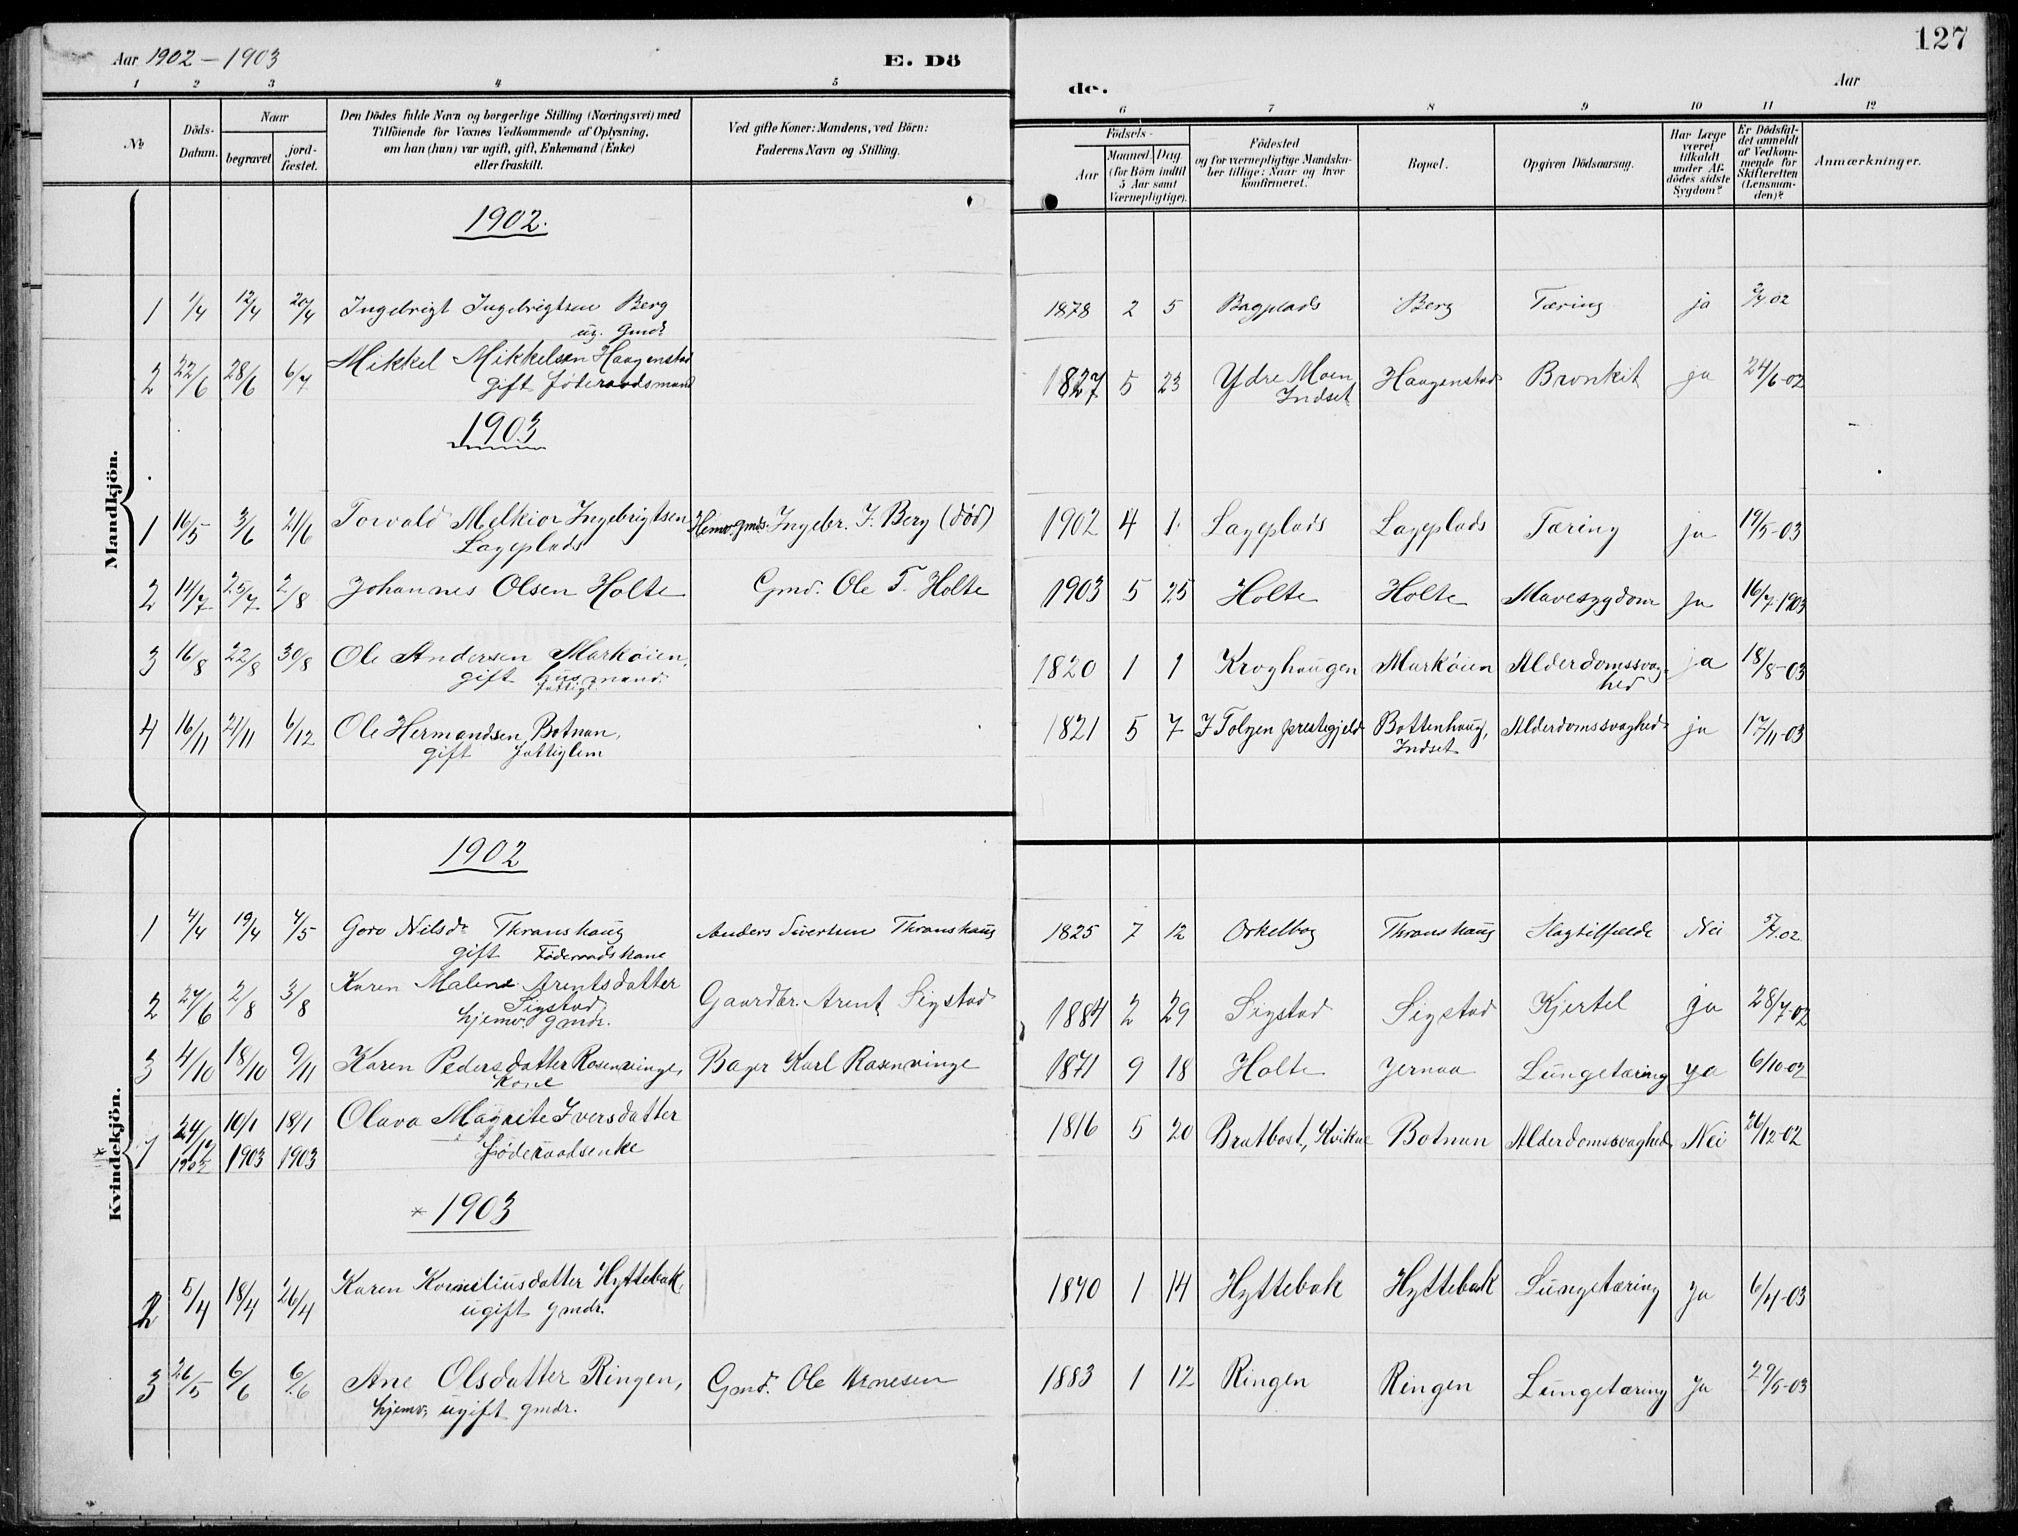 127
Aar 1902 - 1903
E. Dö
de.
Aar
1 2 3 4 5 6 7 8 9 10 11 12
№
Döds-
Datum.
Naar
begravet
jord-
fæstet.
Den Dödes fulde Navn og borgerlige Stilling (Næringsvei) med
Tilföiende for Voxnes Vedkommende af Oplysning,
om han (hun) var ugift, gift, Enkemand (Enke)
eller fraskilt.
Ved gifte Koner: Mandens, ved Börn:
Faderens Navn og Stilling.
Födsels-
Aar
Maaned. Dag
(for Börn indtil
5 Aar samt
Værnepligtige).
Födested
og for værnepligtige Mandska-
ber tillige: Naar og hvor
konfirmeret.
Bopæl.
Opgiven Dödsaarsag.
Har Læge
været
tilkaldt
under Af-
dödes sidste
Sygdom?
Er Dödsfal-
det anmeldt
af Vedkom-
mende for
Skifteretten
(Lensman-
den)?
Anmærkninger.
Mandkjön.
1902.
1 1/4 12/4 20/4 Ingebrigt Ingebrigtsen Berg 1878 2 5 Bagplads Berg Tæring ja 2/4 02
ug. Gmd.
2 22/6 28/6 6/7 Mikkel Mikkelsen Haagenstad 1827 5 23 Ydre Moen Haagenstad Bronkit ja 24/6-02
gift föderaadsmand Indset
1903
1 16/5 3/6 21/6 Torvald Melkior Ingebrigtsen Hemv. gmds. Ingebr. I. Berg (död) 1902 4 1 Lageplads Lageplads Tæring ja 19/5-03
Lageplads
2 14/7 25/7 2/8 Johannes Olsen Holte Gmd. Ole T. Holte 1903 5 25 Holte Holte Mavesygdom ja 16/7-1903
3 16/8 22/8 30/8 Ole Andersen Markøien, 1820 1 1 Kroghaugen Markøien Alderdomssvag- ja 18/8-03
gift husmand. hed
fattigl.
4 16/11 21/11 6/12 Ole Hermandsen Botnan, 1821 5 7 I Tolgen prestegjeld Bottenhaug, Alderdomssvaghed ja 17/11-03
gift fattiglem Indset
Kvindekjön.
1902
1 4/4 19/4 4/5 Goro Nilsdr Thronshaug Anders Sivertsen Thronshaug 1825 7 12 Orkelbog Thronshaug Slagtilfælde Nei 5/4.02
gift Föderaadskone
2 27/6 2/8 3/8 Karen Malene Arentsdatter Gaardbr. Arent Sigstad 1884 2 29 Sigstad Sigstad Kjertel ja 28/7-02
Sigstad,
hjemv. gmdr.
3 4/10 18/10 9/11 Karen Pedersdatter Rosenvinge, Bager Karl Rosenvinge 1871 9 18 Holte Jernaa Lungetæring ja 6/10-02
Kone
* 1 24/12 10/1 18/1 Olava Magnite Iversdatter 1816 5 20 Bratbost, Kvikne Botnan Alderdomssvaghed Nei 26/12-02
1902 1903 1903 föderaadsenke
* 1903
2 5/4 18/4 26/4 Karen Korneliusdatter Hyttebak, 1870 1 14 Hyttebak Hyttebak Lungetæring ja 6/4-03
ugift gmdr.
3 26/5 6/6 6/6 Ane Olsdatter Ringen, Gmd. Ole Arnesen 1883 1 12 Ringen Ringen Lungetæring ja 29/5-03
hjemv. ugift gmdr.